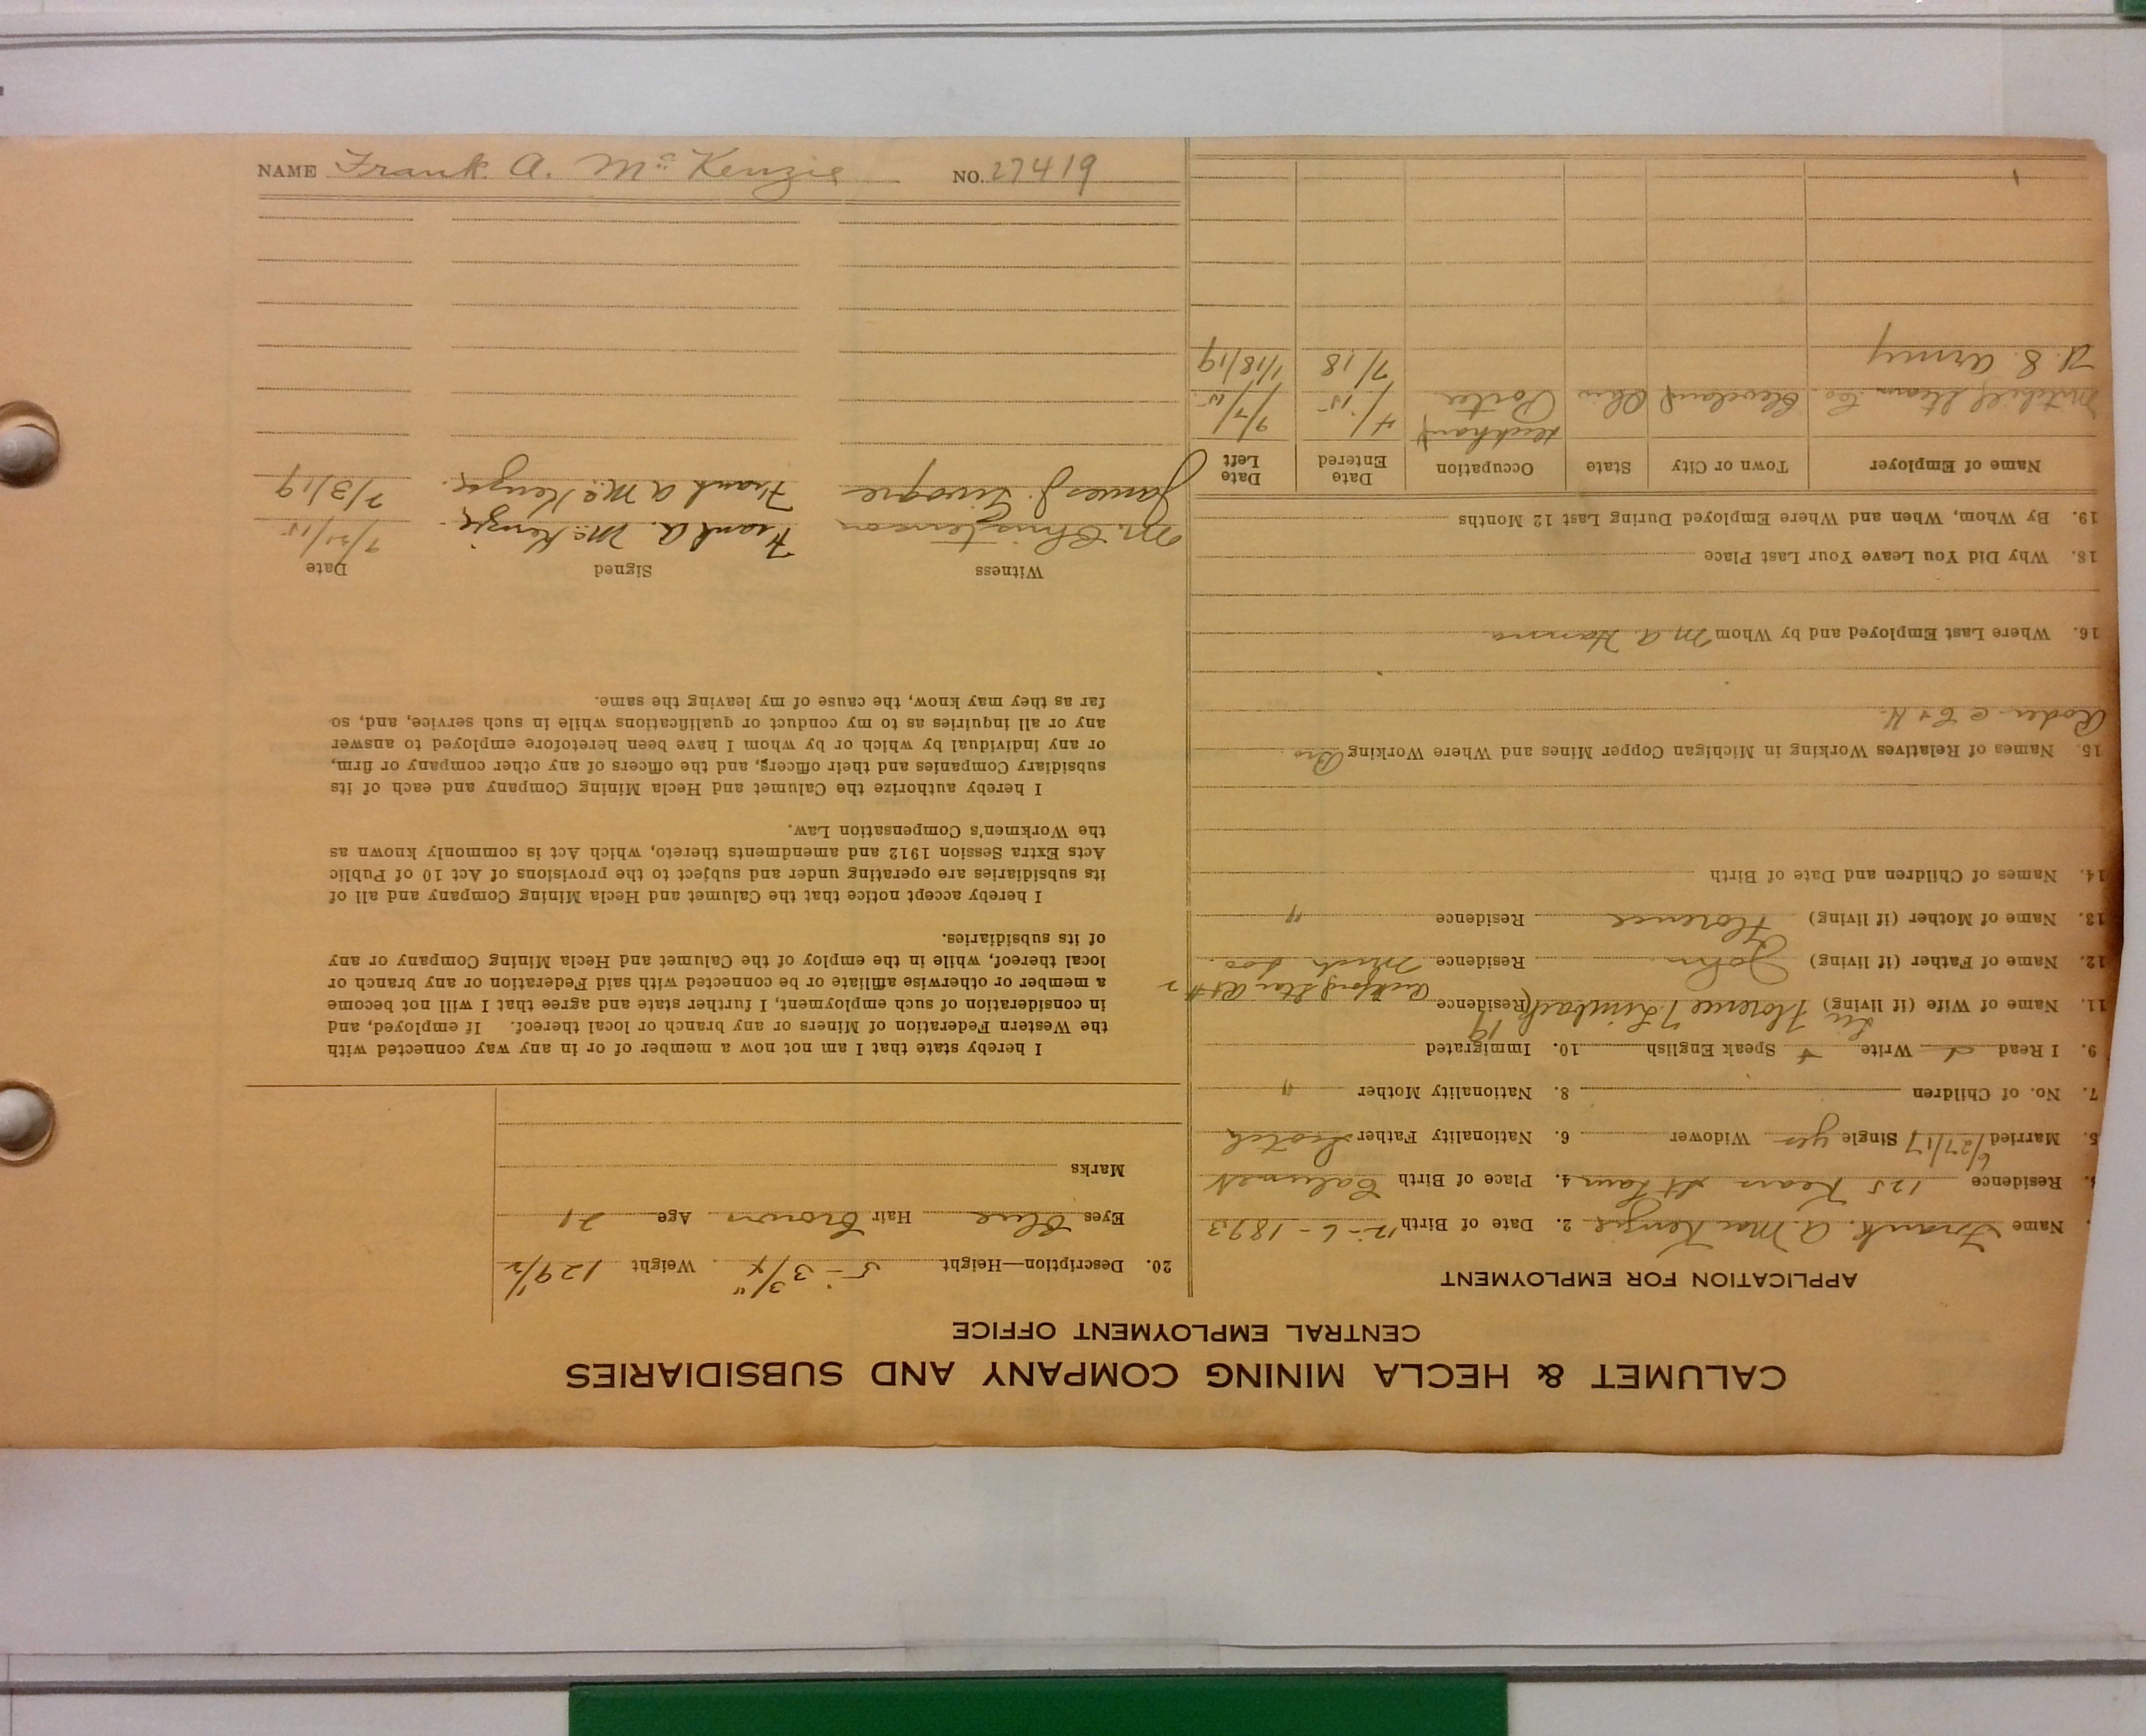 CALUMET & HECLA MINING COMPANY AND SUBSIDIARIES
CENTRAL EMPLOYMENT OFFICE
APPLICATION FOR EMPLOYMENT
Name Frank A Mac Kenzie 2. Date of Birth 12-6-1893
Residence 125 Kears St Laur 4. Place of Birth Calumet
6/27/17
5. Married Single yes Widower 6. Nationality Father Scotch
7. No. of Children 8. Nationality Mother "
9. I Read Write Speak English 10. Immigrated
11. Name of Wife (if living) Florence Residence
12. Name of Father (if living) John Residence
13. Name of Mother (if living) Florence Residence "
14. Names of Children and Date of Birth
15. Names of Relatives Working in Michigan Copper Mines and Where Working Bro
C & H.
16. Where Last Employed and by Whom M A Hanna
18. Why Did You Leave Your Last Place
19. By Whom, When and Where Employed During Last 12 Months
Name of Employer Town or City State Occupation Date Entered Date Left
Cleveland Ohio Porter 4/15 9/7/15
U. S. Army 7/18 1/18/19
20. Description—Height 5-3 3/4" Weight 129 1/2
Eyes Blue Hair Brown Age 21
Marks
I hereby state that I am not now a member of or in any way connected with
the Western Federation of Miners or any branch or local thereof. If employed, and
in consideration of such employment, I further state and agree that I will not become
a member or otherwise affiliate or be connected with said Federation or any branch or
local thereof, while in the employ of the Calumet and Hecla Mining Company or any
of its subsidiaries.
I hereby accept notice that the Calumet and Hecla Mining Company and all of
its subsidiaries are operating under and subject to the provisions of Act 10 of Public
Acts Extra Session 1912 and amendments thereto, which Act is commonly known as
the Workmen's Compensation Law.
I hereby authorize the Calumet and Hecla Mining Company and each of its
subsidiary Companies and their officers, and the officers of any other company or firm,
or any individual by which or by whom I have been heretofore employed to answer
any or all inquiries as to my conduct or qualifications while in such service, and, so
far as they may know, the cause of my leaving the same.
Witness Signed Date
M. Christenson Frank A. McKenzie 9/21/15
James J. Frank A McKenzie. 2/3/19
NAME Frank A. McKenzie NO. 27419